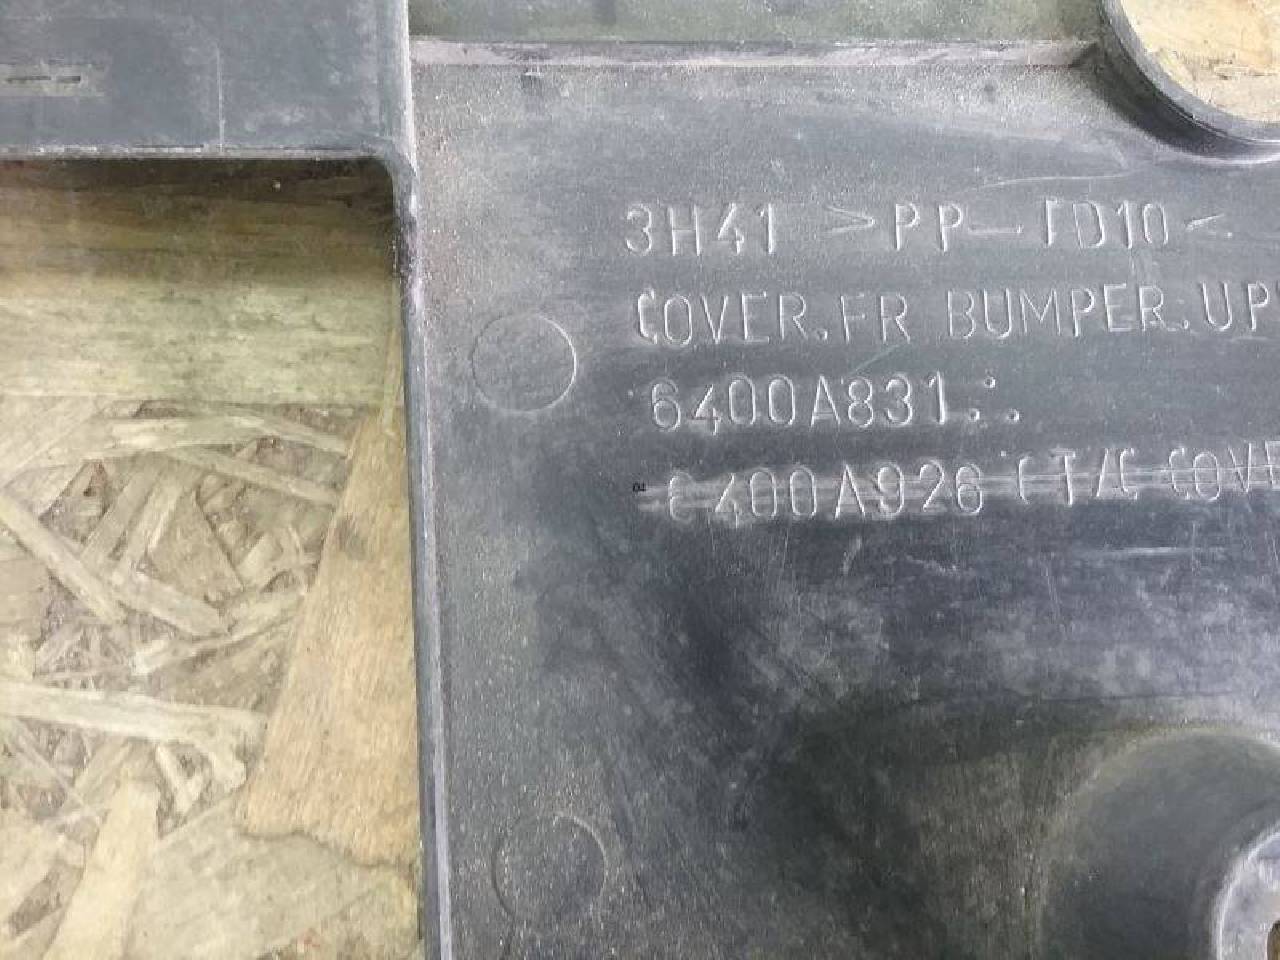 3H41 >PP-TD10<
COVER.FR BUMPER.UP
6400A831
6400A926 (T/C COVE
04